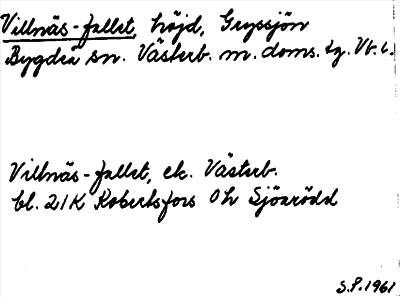 Villnäs-fallet, höjd, Gryssjön
Bygdeå sn. Västerb. m. doms. tg. Vb. l.
Villnäs-fallet, ek. Västerb.
bl. 21K Robertsfors 0h Sjöarödd
S.P. 1961